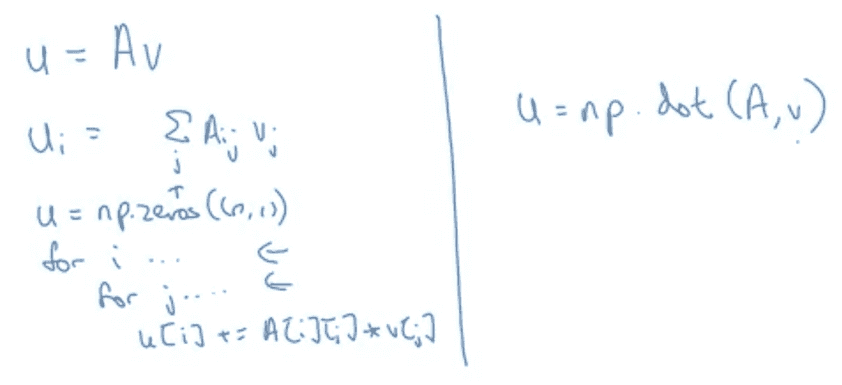 u = Av
uᵢ = Σⱼ Aᵢⱼ vⱼ
u = np.zeros((n,1))
for i ... ←
for j .... ←
u[i] += A[i][j] * v[j]
u = np.dot(A,v)